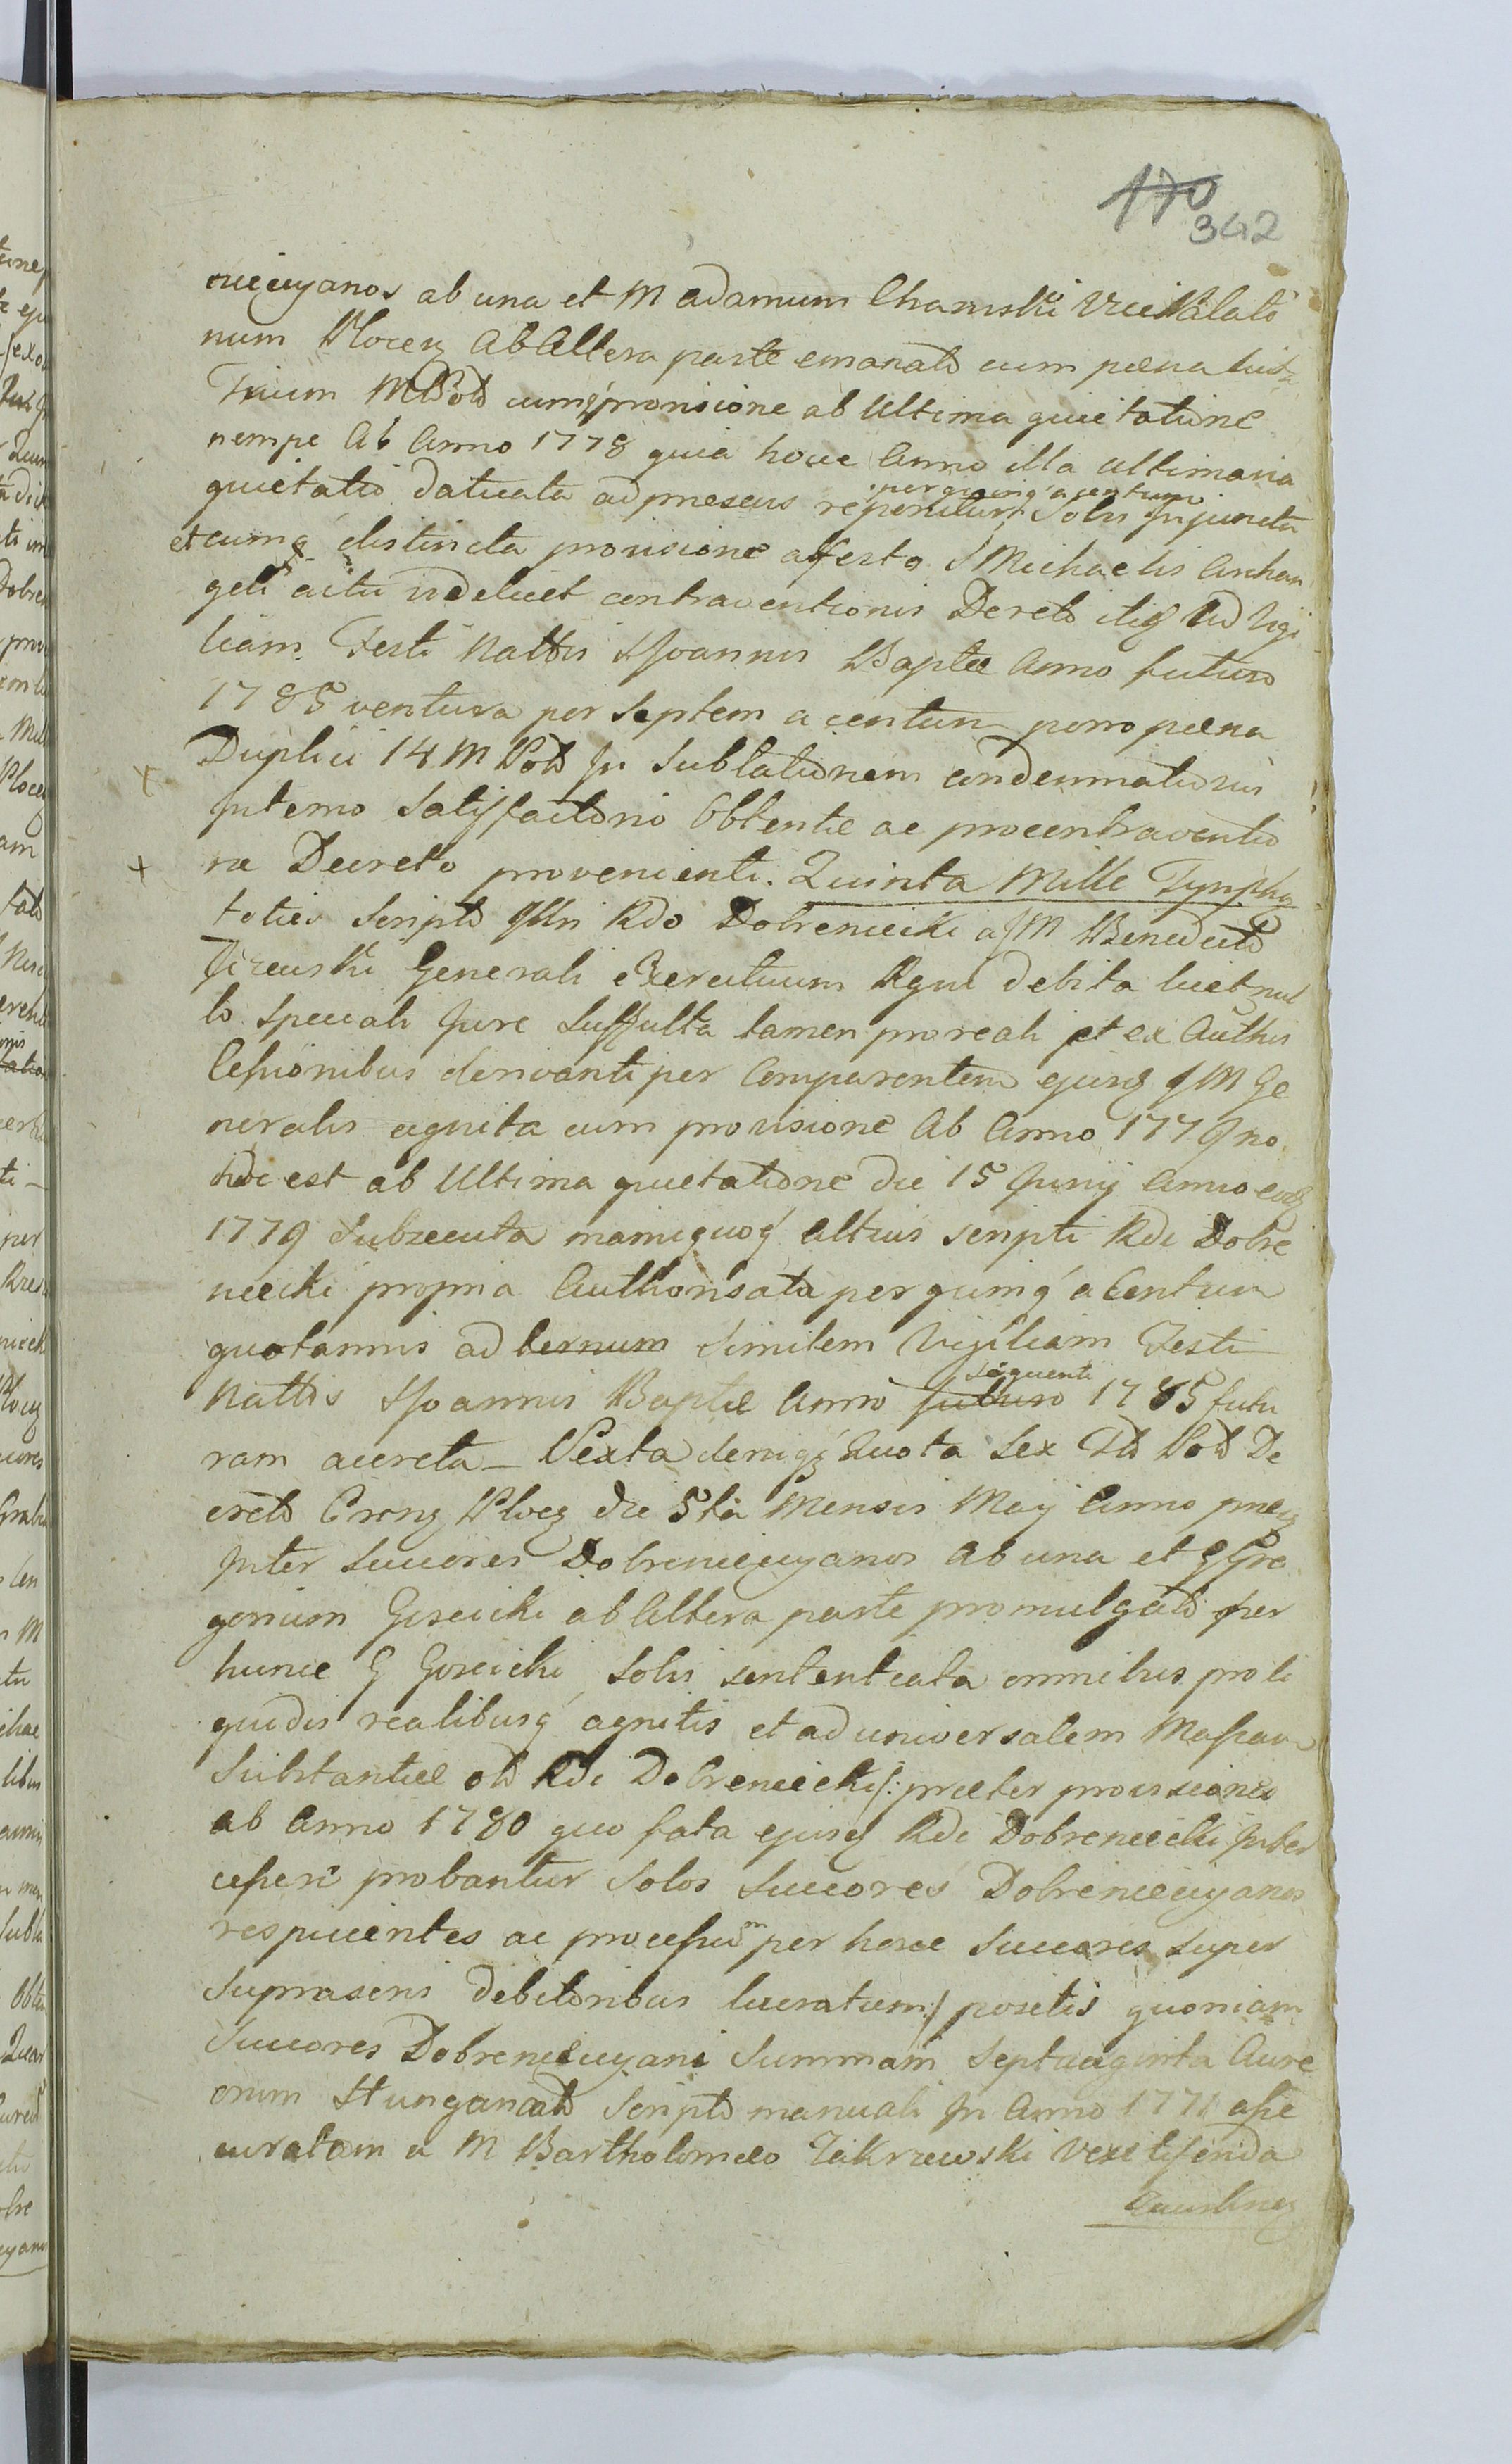 170
342
niecyanos ab una et M Adamum Chamski Vice Palati
num Plocen Ab Altera parte emanato cum pœna luita
Trium M Pol cumq provisione ab Ultima quietatione
nempe Ab Anno 1778 quia hocce Anno illa ultimaria
quietatio daticata ad præsens reperitur per quinq a centum Solis Injuncta
et cumq distincta provisione a festo S Michaelis Archan
geli actu videlicet contraventionis Decreto itiq ad Vigi
liam Festi Nattis S Joannis Baptæ Anno futuro
1785 ventura per Septem a centum porro pœna
Duplici 14 M Pol In Sublationem condemnationis
Interno Satisfactorio Obtentæ ac pro contraventio
ne Decreto provenienti. Quinta Mille Tynpho
toties Scripto Illri Rdo Dobreniecki a JM Benedicto
Generali Exercituum Regni debita licet nul
lo Speciali Jure Suffulta tamen pro reali et ex Authis
Cessionibus derivanti per Comparentem ejusq JM Ge
neralis agnita cum provisione Ab Anno 1779no
hoc est ab Ultima quietatione die 15 Junij Anno eodq
1779 Subsecuta manuquoq altius scripti Rdi Dobre
niecki propria Authorisata per quinq a Centum
quotannis ad ternum Similem Vigiliam Festi
Nattis S Joannis Baptæ Anno futuro sequenti 1785 futu
ram accreta – Sexta deniqz Quota Sex Pol De
creto Plocz die 5ta Mensis Maij Anno
Inter Succores Dobreniecyanos Ab una et G Gre
gorium Goscicki ab Altera parte promulgato per
hunce G Goscicki Solis sententiata omnibus pro li
quidis realibusq agnitis et ad universalem Massam
Substantiæ Rdi Dobreniecki /: præter provisiones
ab Anno 1780 quo fata ejusq Rdi Dobreniecki Inter
cesseri probantur Solos Succores Dobreniecyanos
respicientes ac processum per hosce Succores super
Suprascris debitoribus lucratum :/ positis quoniam
Succores Dobreniecyani Summam Septuaginta Aure
orum Hungaricalo Scripto manuali In Anno 1771 asse
curatam a M Bartholomeo Zakrzewski Vexillifenda